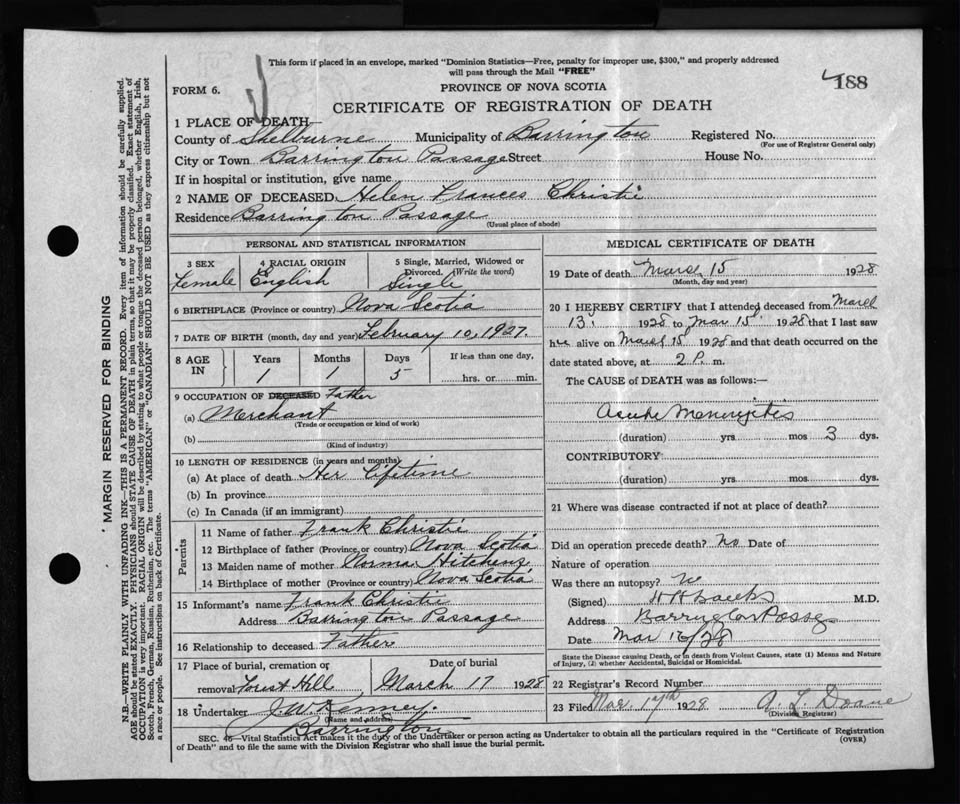 This form if placed in an envelope, marked "Dominion Statistics—Free, penalty for improper use, $300," and properly addressed
will pass through the Mail "FREE"
188
FORM 6.
PROVINCE OF NOVA SCOTIA
CERTIFICATE OF REGISTRATION OF DEATH
1 PLACE OF DEATH
County of Shelburne Municipality of Barrington Registered No.
(For use of Registrar General only)
City or Town Barrington Passage Street House No.
If in hospital or institution, give name
2 NAME OF DECEASED Helen Frances Christie
Residence Barrington Passage
(Usual place of abode)
PERSONAL AND STATISTICAL INFORMATION
3 SEX 4 RACIAL ORIGIN 5 Single, Married, Widowed or
Divorced. (Write the word)
Female English Single
6 BIRTHPLACE (Province or country) Nova Scotia
7 DATE OF BIRTH (month, day and year) February 10, 1927.
8 AGE IN Years Months Days If less than one day,
1 1 5 hrs. or min.
9 OCCUPATION OF DECEASED Father
(a) Merchant
(Trade or occupation or kind of work)
(b)
(Kind of industry)
10 LENGTH OF RESIDENCE (in years and months)
(a) At place of death Her Lifetime
(b) In province
(c) In Canada (if an immigrant)
Parents
11 Name of father Frank Christie
12 Birthplace of father (Province or country) Nova Scotia
13 Maiden name of mother Norma Hitchens
14 Birthplace of mother (Province or country) Nova Scotia
15 Informant's name Frank Christie
Address Barrington Passage
16 Relationship to deceased Father
17 Place of burial, cremation or Date of burial
removal Forest Hill March 17 1928
18 Undertaker J. W. Kenney.
(Name and address)
Barrington
MEDICAL CERTIFICATE OF DEATH
19 Date of death March 15 1928
(Month, day and year)
20 I HEREBY CERTIFY that I attended deceased from March
13. 1928 to Mar 15 1928 that I last saw
her alive on March 15 1928 and that death occurred on the
date stated above, at 2 P. m.
The CAUSE of DEATH was as follows:—
Acute Meningitis
(duration) yrs. mos 3 dys.
CONTRIBUTORY
(duration) yrs. mos. dys.
21 Where was disease contracted if not at place of death?
Did an operation precede death? No Date of
Nature of operation
Was there an autopsy? No
(Signed) M.D.
Address Barrington Passg
Date Mar 16/28
State the Disease causing Death, or in death from Violent Causes, state (1) Means and Nature
of Injury, (2) whether Accidental, Suicidal or Homicidal.
22 Registrar's Record Number
23 Filed Mar. 17th 1928 A. L. Doane
(Division Registrar)
SEC. 46—Vital Statistics Act makes it the duty of the Undertaker or person acting as Undertaker to obtain all the particulars required in the "Certificate of Registration
of Death" and to file the same with the Division Registrar who shall issue the burial permit.
(OVER)
MARGIN RESERVED FOR BINDING
N.B.—WRITE PLAINLY WITH UNFADING INK—THIS IS A PERMANENT RECORD. Every item of information should be carefully supplied.
AGE should be stated EXACTLY. PHYSICIANS should STATE CAUSE OF DEATH in plain terms, so that it may be properly classified. Exact statement of
OCCUPATION is very important. RACIAL ORIGIN will be described by stating to what people or race the deceased person belonged, whether English, Irish,
Scotch, French, German, Russian, Ruthenian, etc. The terms "AMERICAN" or "CANADIAN" SHOULD NOT BE USED as they express citizenship but not
a race or people. See instructions on back of Certificate.